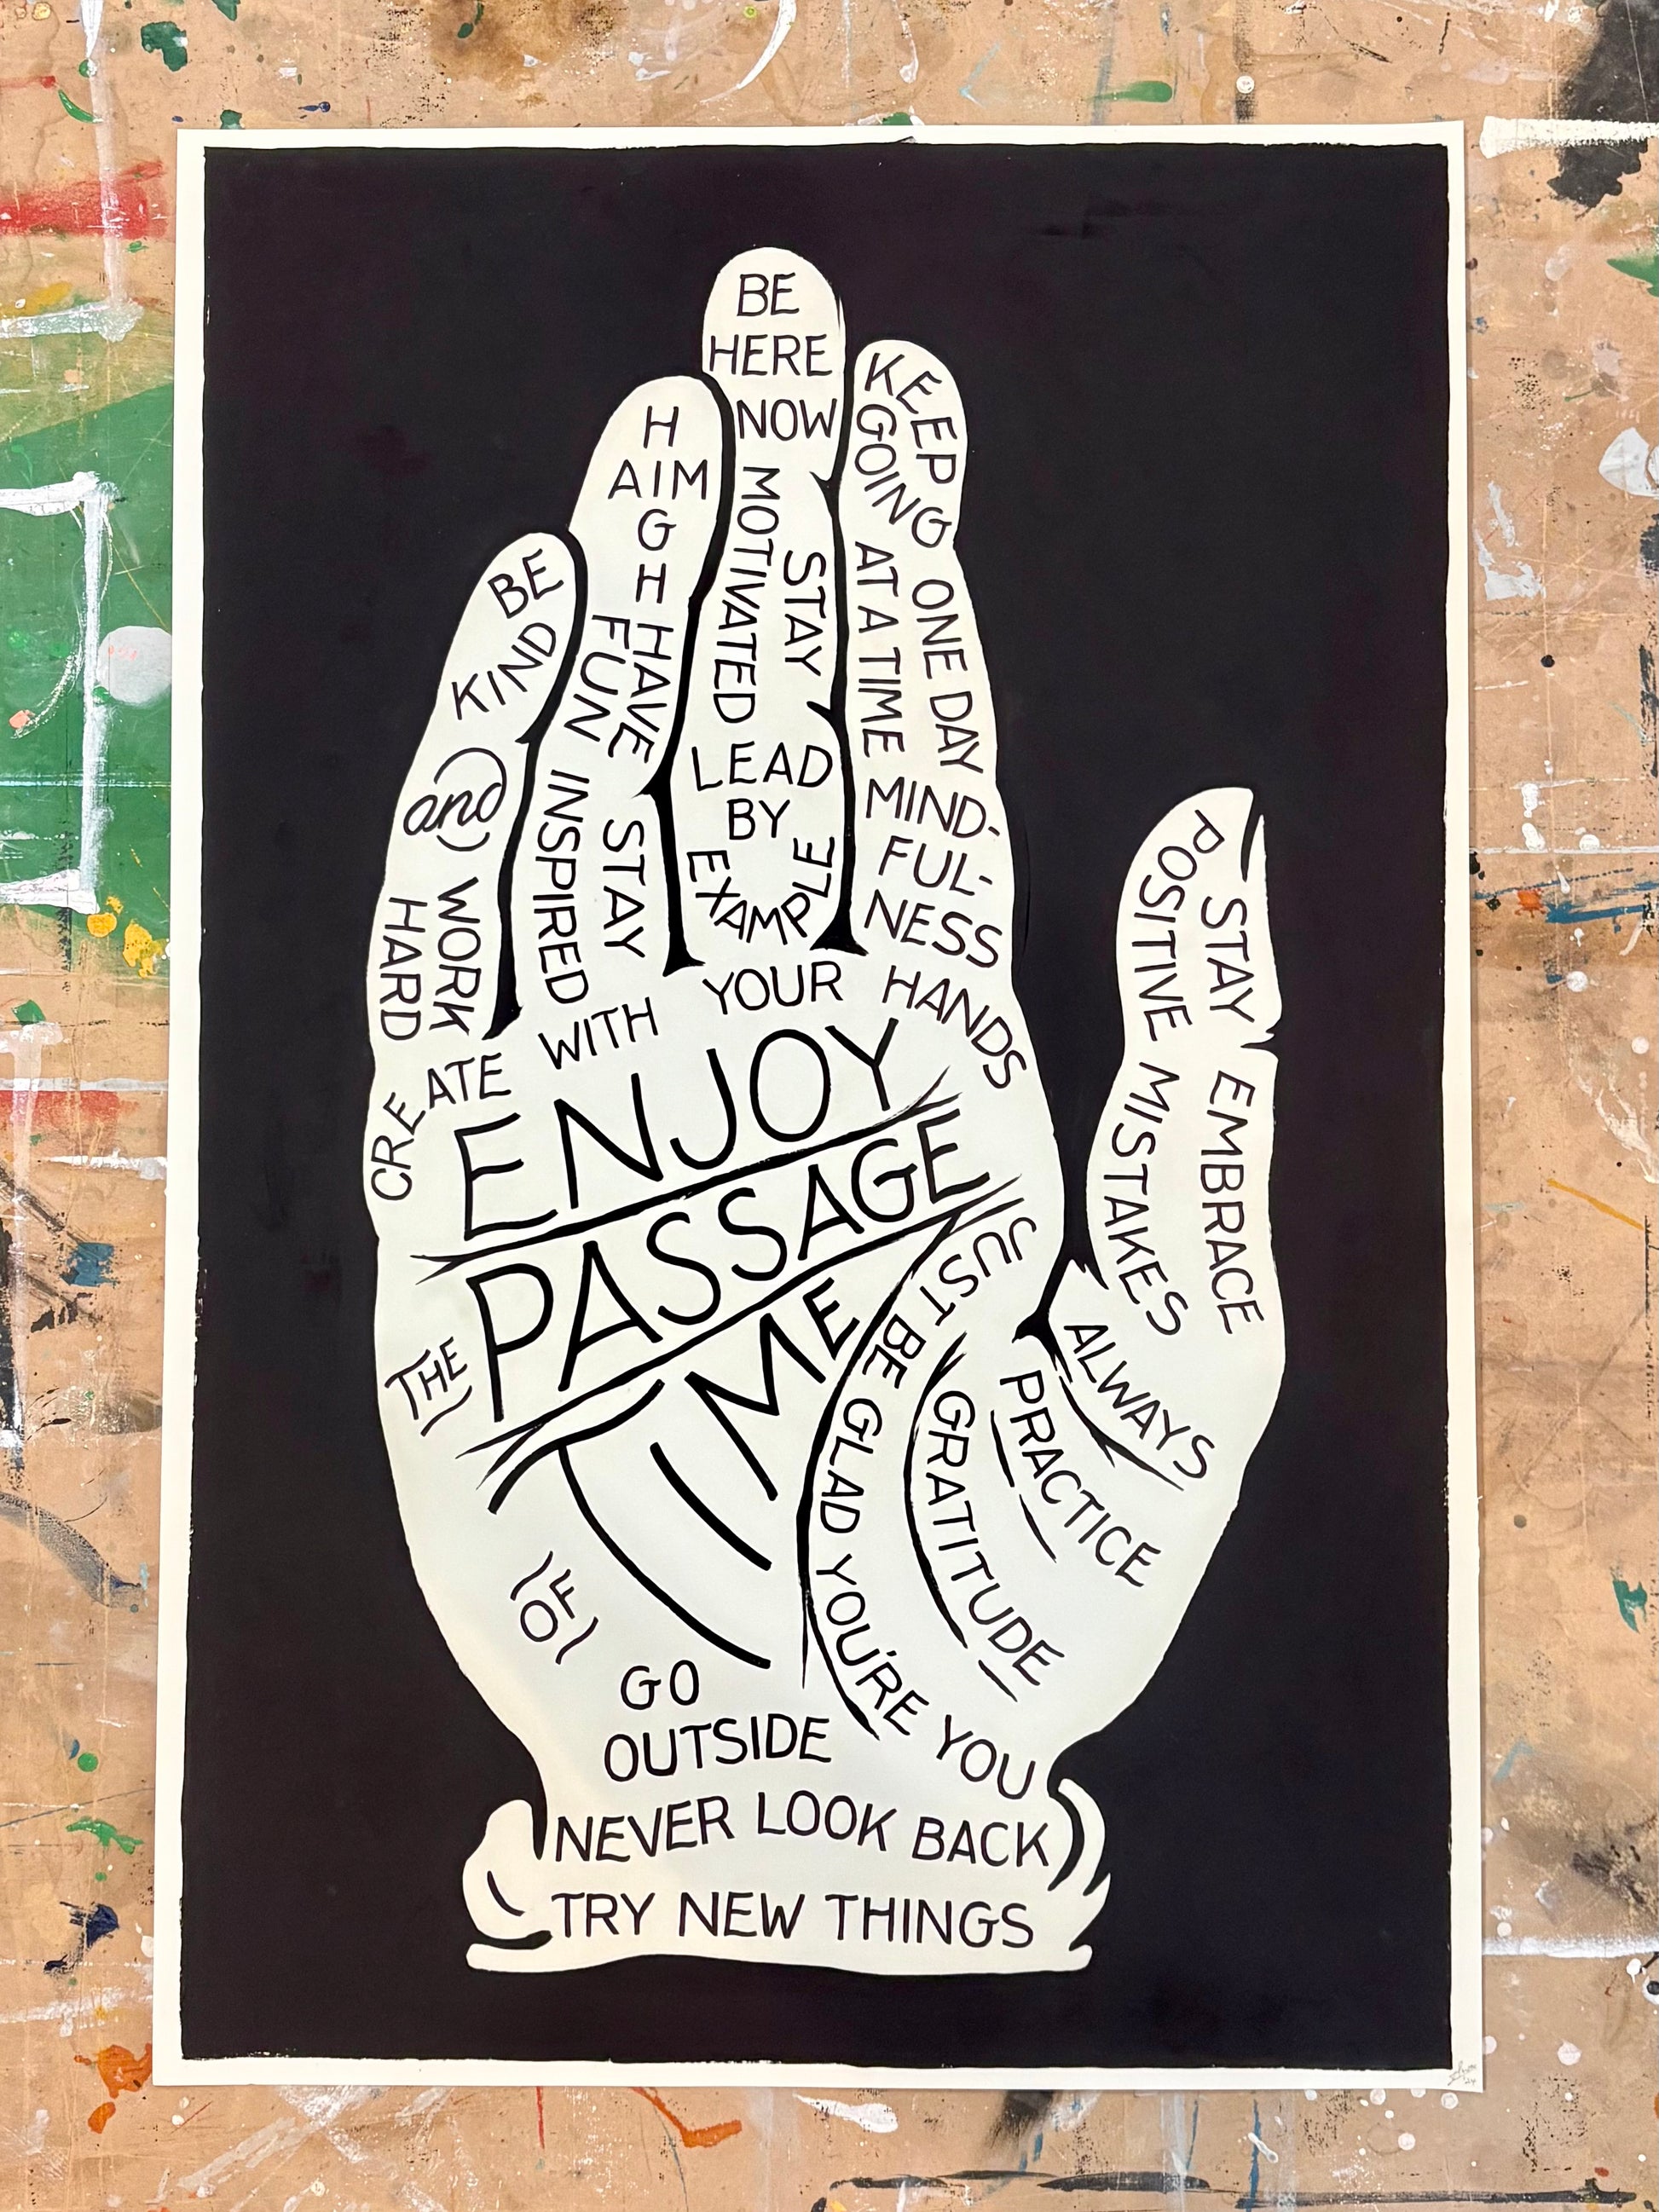 BE
KIND
and
WORK
HARD
H
AIM
G
H
HAVE
FUN
STAY
INSPIRED
BE
HERE
NOW
STAY
MOTIVATED
LEAD
BY
EXAMPLE
KEEP
GOING
ONE DAY
AT A TIME
MIND-
FUL-
NESS
STAY
POSITIVE
EMBRACE
MISTAKES
CREATE WITH YOUR HANDS
ENJOY
THE
PASSAGE
OF
TIME
JUST BE GLAD YOU'RE YOU
ALWAYS
PRACTICE
GRATITUDE
GO
OUTSIDE
NEVER LOOK BACK
TRY NEW THINGS